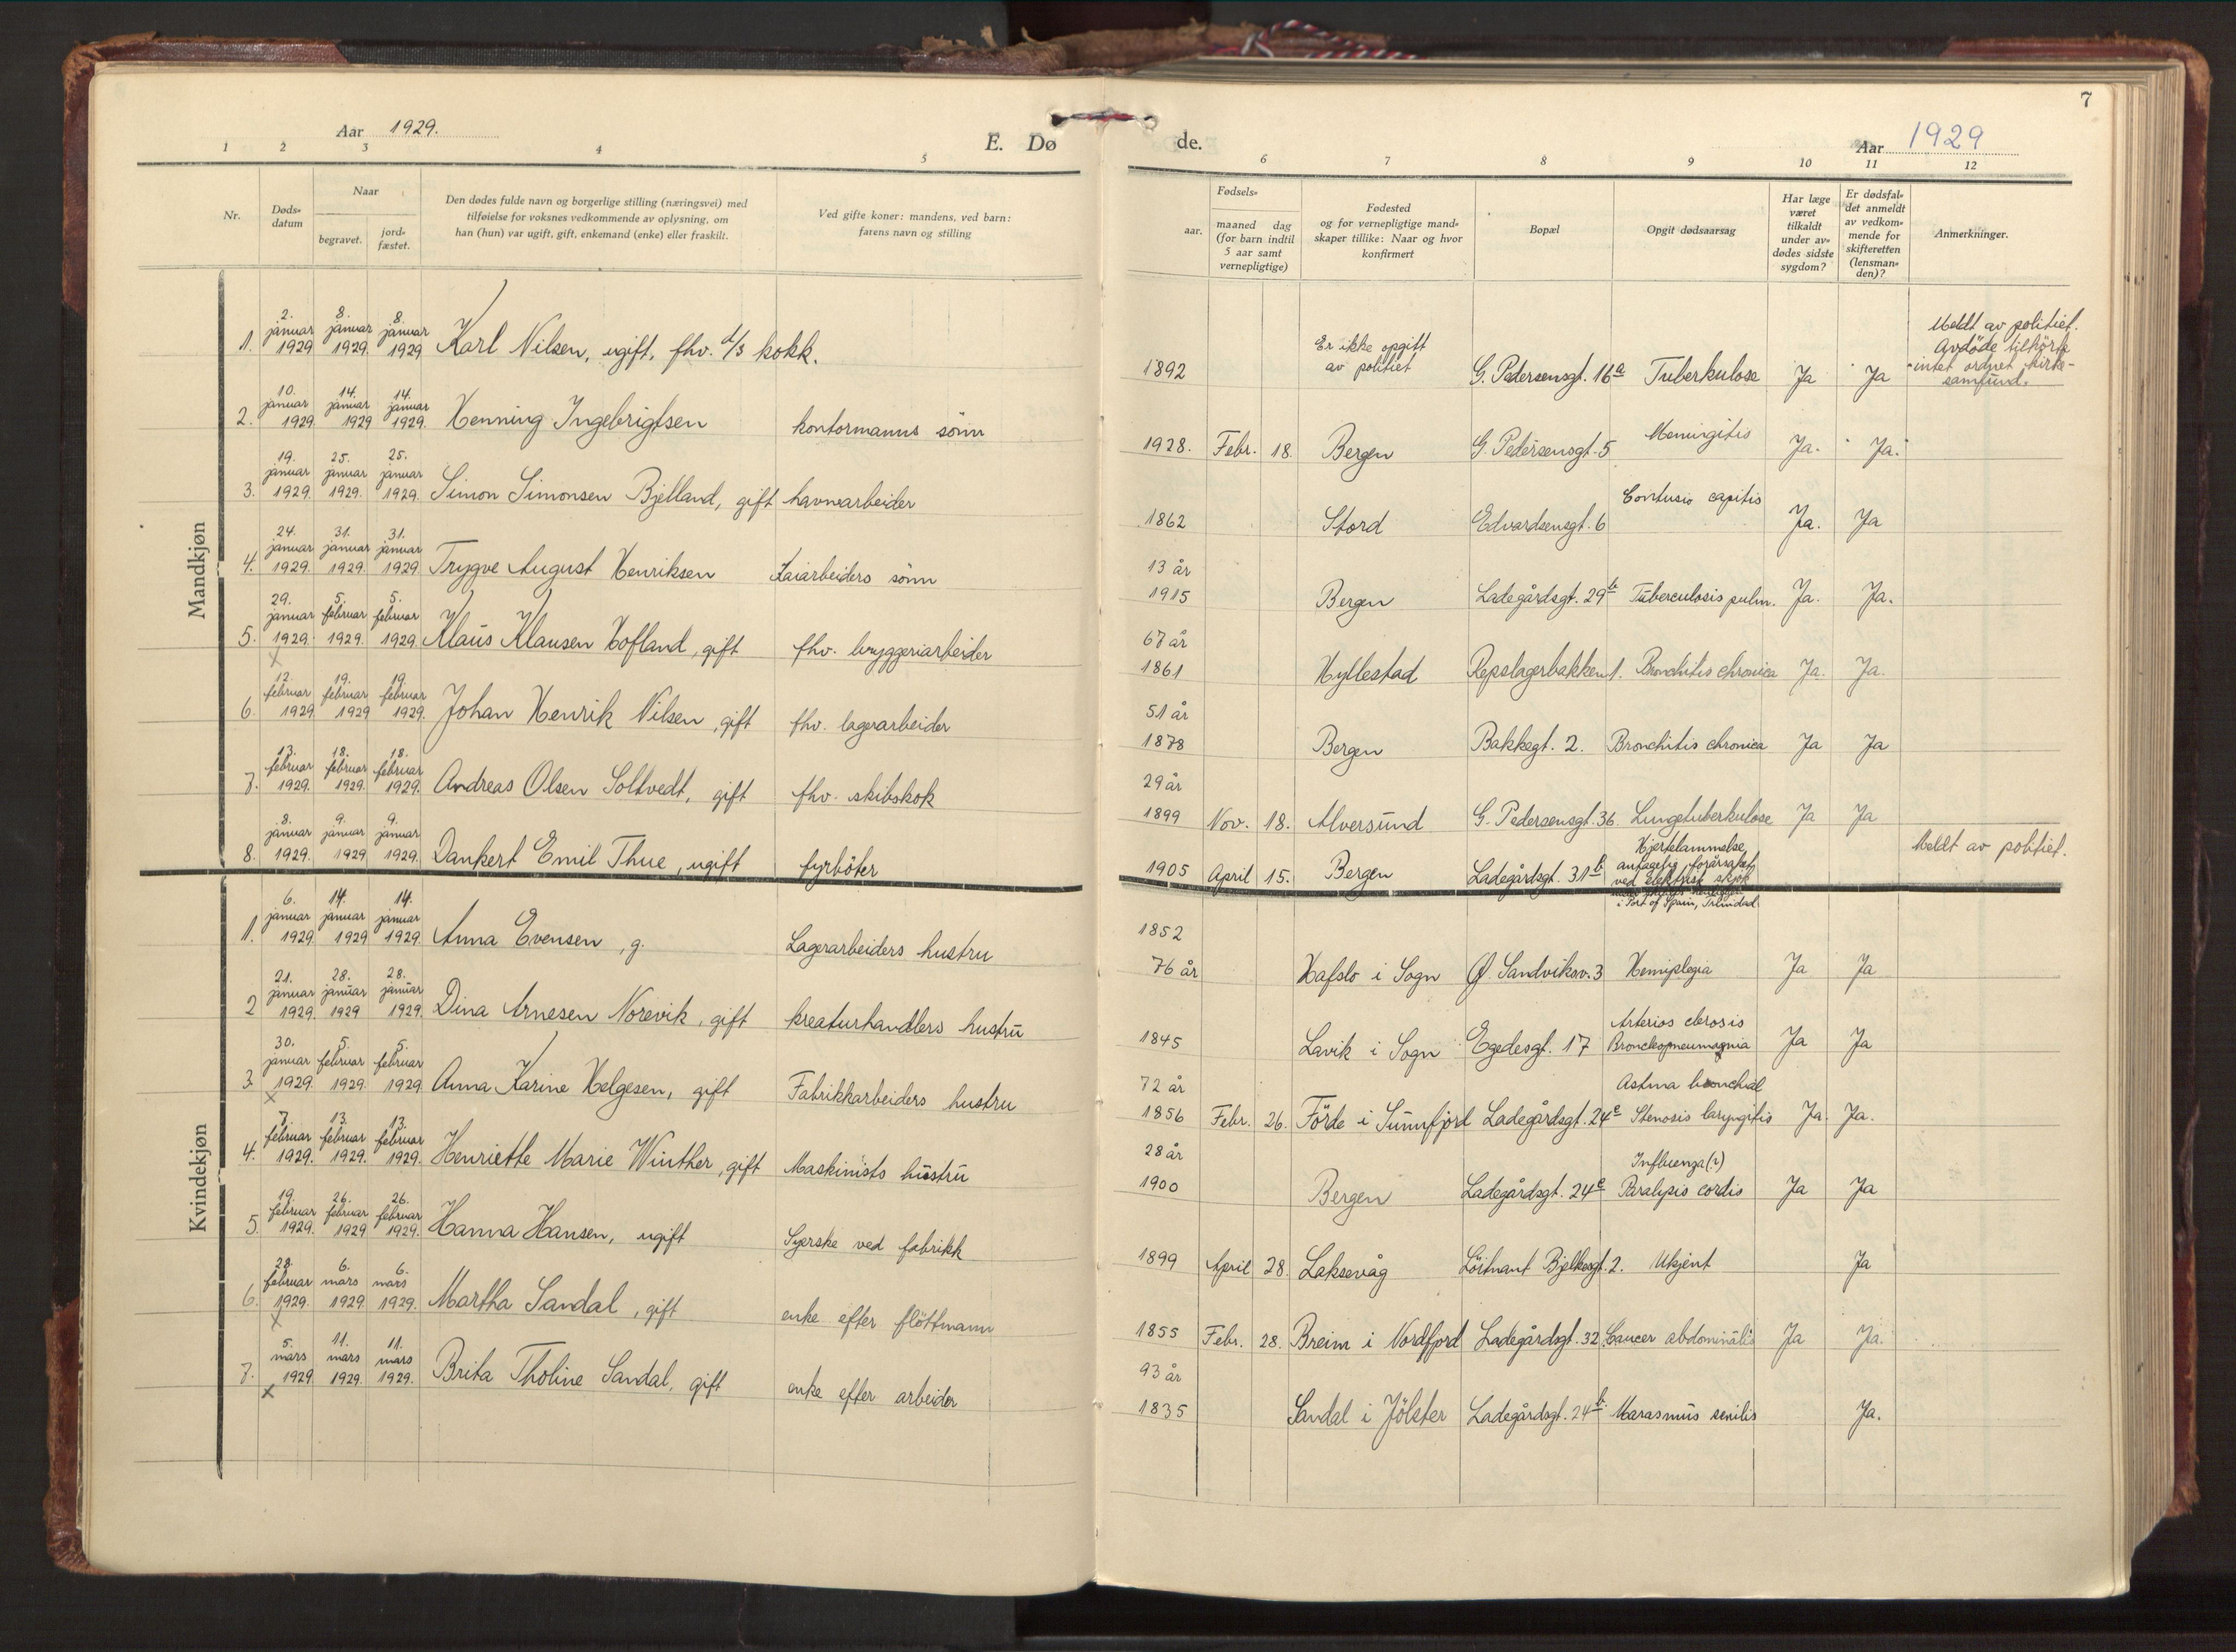 7
Aar 1929.
E. Dø
de.
Aar 1929
1 2 3 4 5
6 7 8 9 10 11 12
Nr.
Døds-
datum
Naar
begravet.
jord-
fæstet.
Den dødes fulde navn og borgerlige stilling (næringsvei) med
tilføielse for voksnes vedkommende av oplysning, om
han (hun) var ugift, gift, enkemand (enke) eller fraskilt.
Ved gifte koner: mandens, ved barn:
farens navn og stilling
Fødsels-
aar.
maaned dag
(for barn indtil
5 aar samt
vernepligtige)
Fødested
og for vernepligtige mand-
skaper tillike: Naar og hvor
konfirmert
Bopæl
Opgit dødsaarsag
Har læge
været
tilkaldt
under av-
dødes sidste
sygdom?
Er dødsfal-
det anmeldt
av vedkom-
mende for
skifteretten
(lensman-
den)?
Anmerkninger.
Mandkjøn
1. 2. januar 1929 8. januar 1929. 8. januar 1929 Karl Nilsen, ugift, fhv. d/s kokk.
1892 Er ikke opgitt av politiet G. Pedersensgt. 16a Tuberkulose Ja Ja Meldt av politiet. Avdöde tilhörte intet ordnet kirke-samfund.
2. 10. januar 1929. 14. januar 1929 14. januar 1929. Henning Ingebrigtsen kontormanns sönn
1928. Febr. 18. Bergen G. Pedersensgt. 5 Meningitis Ja. Ja.
3. 19. januar 1929. 25. januar 1929. 25. januar 1929. Simon Simonsen Bjelland, gift havnearbeider
1862 Stord Edvardsensgt. 6 Contusio capitis Ja. Ja
4. 24. januar 1929. 31. januar 1929. 31. januar 1929 Trygve August Henriksen Kaiarbeiders sönn
13 år
1915 Bergen Ladegårdsgt. 29b Tuberculosis pulm. Ja. Ja.
5. 29. januar 1929. 5. februar 1929. 5. februar 1929 Klaus Klausen Hofland, gift fhv. bryggeriarbeider
x
67 år
1861 Hyllestad Repslagerbakken 1. Bronchitis chronica Ja. Ja.
6. 12. februar 1929. 19. februar 1929 19. februar 1929. Johan Henrik Nilsen, gift fhv. lagerarbeider
51 år
1878 Bergen Bakkegt. 2. Bronchitis chronica Ja Ja
7. 13. februar 1929. 18. februar 1929. 18. februar 1929. Andreas Olsen Soltvedt, gift fhv. skibskok
29 år
1899 Nov. 18. Alversund G. Pedersensgt. 36. Lungetuberkulose Ja Ja
8. 8. januar 1929. 9. januar 1929 9. januar 1929. Dankert Emil Thue, ugift fyrböter
1905 April 15. Bergen Ladegårdsgt. 31b Hjertelammelse, antagelig forårsaket ved elektrisk skjok i Port of Spain, Trinidad. Meldt av politiet.
Kvindekjøn
1. 6. januar 1929 14. januar 1929 14. januar 1929. Anna Evensen, g. Lagerarbeiders hustru
1852
76 år Hafslo i Sogn Ø. Sandviksv. 3 Hemiplegia Ja Ja
2 21. januar 1929. 28. januar 1929 28. januar 1929. Dina Arnesen Norevik, gift kreaturhandlers hustru
1845 Lavik i Sogn Egedesgt. 17 Arterios clerosis Broncheopneumognia Ja Ja
3. 30. januar 1929. 5. februar 1929. 5. februar 1929. Anna Karine Helgesen, gift Fabrikkarbeiders hustru
x
72 år
1856 Febr. 26. Förde i Sunnfjord Ladegårdsgt. 24e Astma bronchial Stenosis laryngitis Ja. Ja.
4. 7. februar 1929. 13. februar 1929. 13. februar 1929. Henriette Marie Winther, gift Maskinists hustru
28 år
1900 Bergen Ladegårdsgt. 24e Influenza (?) Paralysis cordis Ja Ja
5. 19. februar 1929. 26. februar 1929 26. februar 1929. Hanna Hansen, ugift Syerske ved fabrikk
1899 April 28. Laksevåg Löitnant Bjelkesgt. 2. Ukjent Ja
6. 28. februar 1929. 6. mars 1929. 6. mars 1929. Martha Sandal, gift enke efter flöttmann
x
1855 Febr. 28. Breim i Nordfjord Ladegårdsgt. 32 Cancer abdominalis Ja Ja.
7. 5. mars 1929 11. mars 1929. 11. mars 1929. Brita Tholine Sandal, gift enke efter arbeider
x
93 år
1835 Sandal i Jölster Ladegårdsgt. 24b. Marasmus senilis Ja.